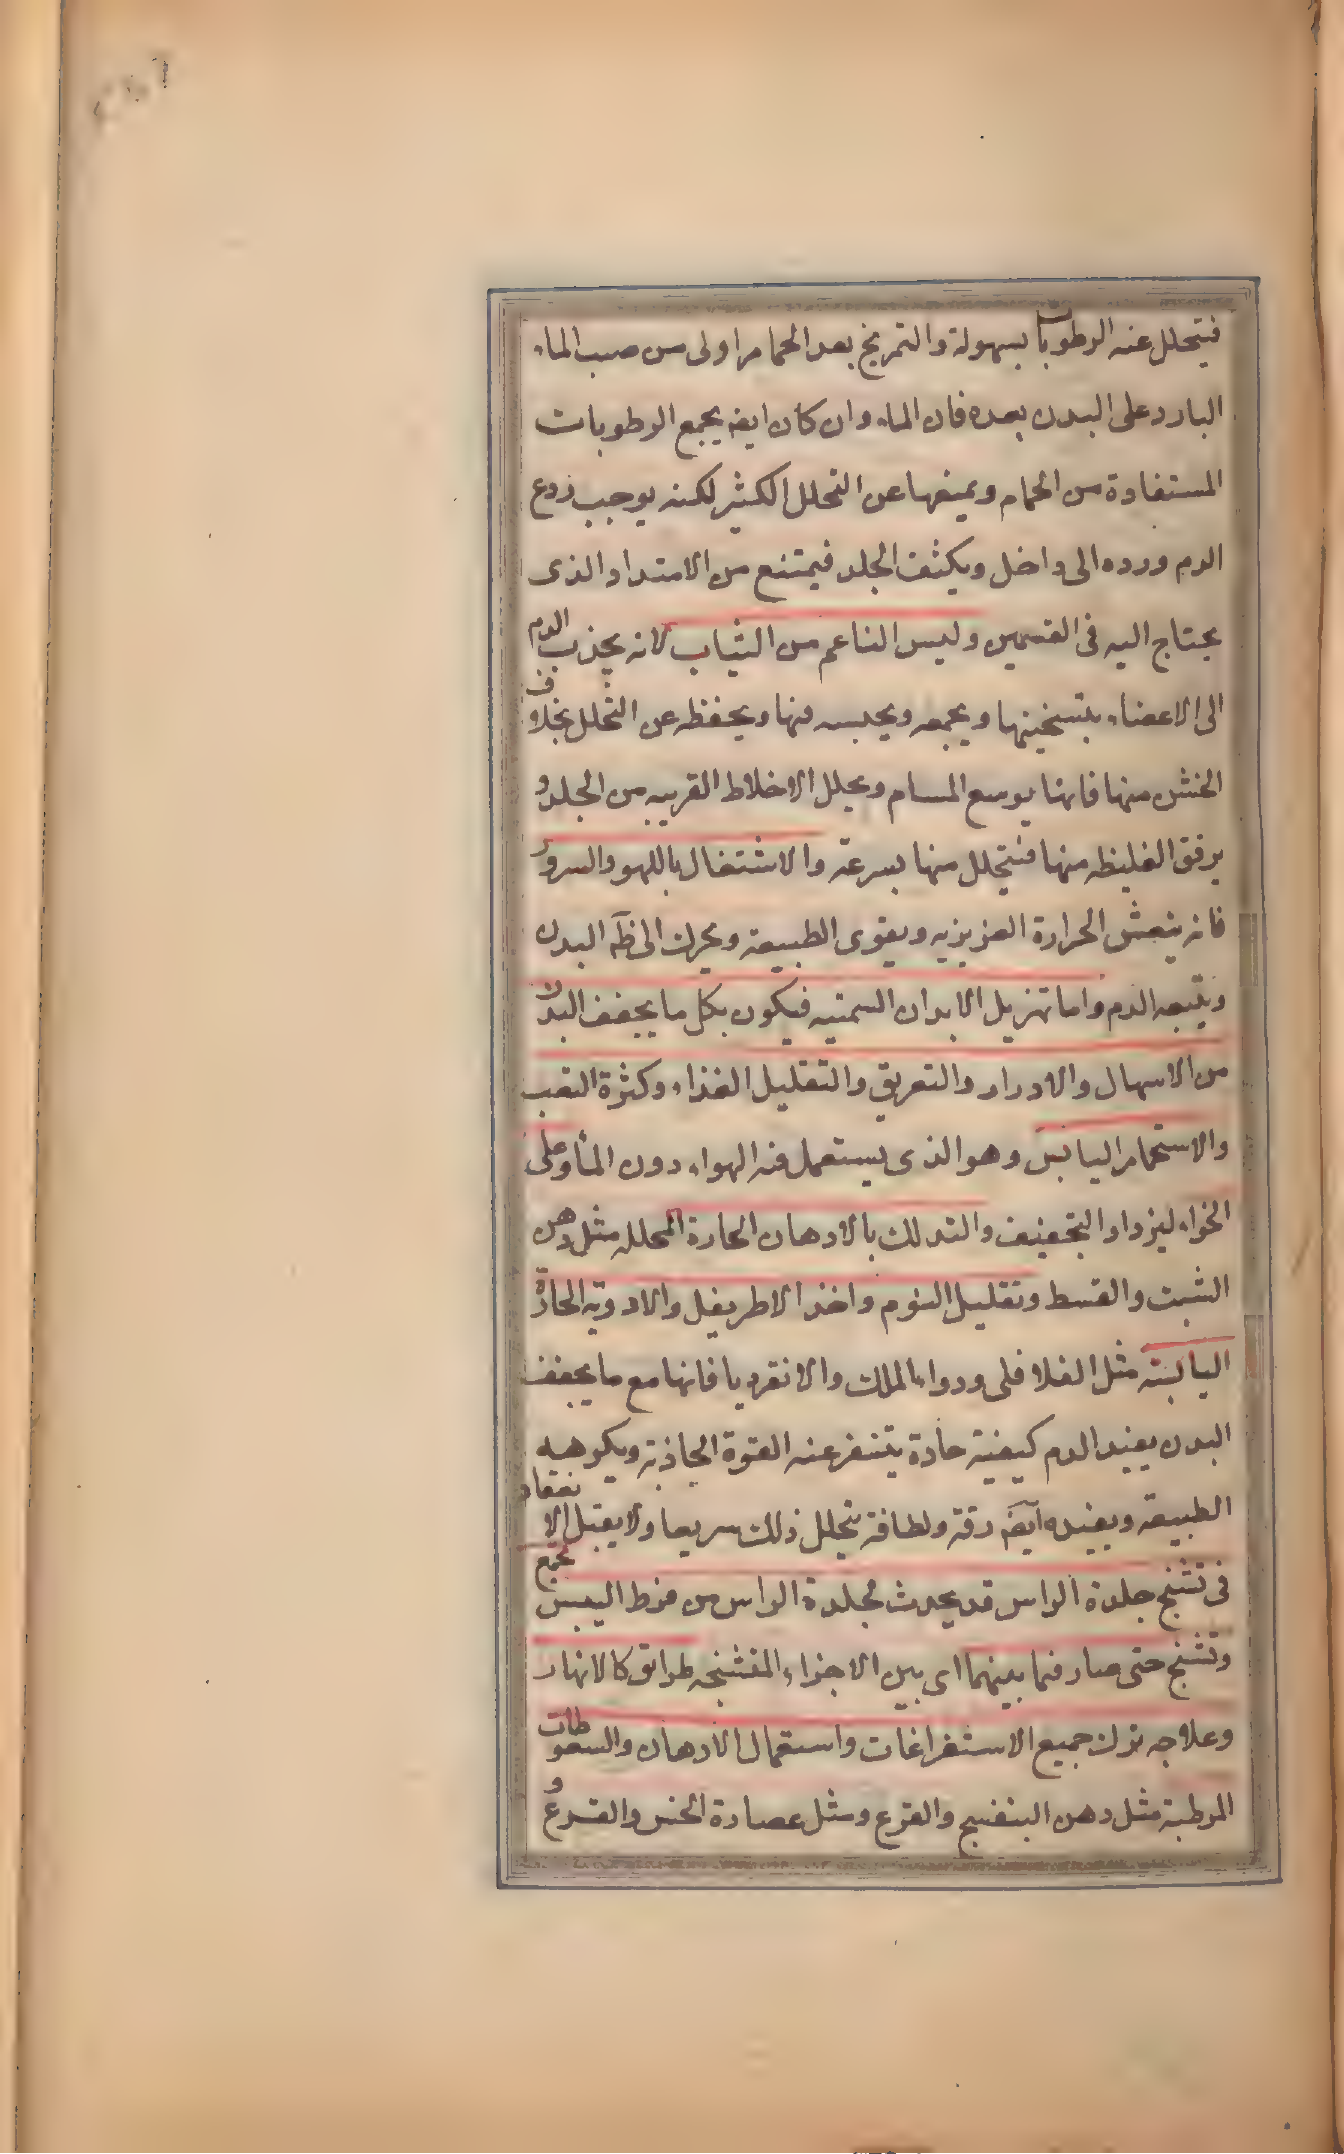 فيتحلل عنه الرطوبات بسهولة والتمريخ بعد الحمام اولى من صب الماء
البارد على البدن بعده فان الماء وان كان ايضا يجمع الرطوبات
المستفادة من الحمام ويمنعها عن التحلل الكثير لكنه يوجب ردع
الدم ورده الى داخل ويكثف الجلد فيمتنع من الامتداد الذى
يحتاج اليه فى القسمين وليس الناعم من الثياب لانه يجذب الدم
الى الاعضاء بتسخينها ويجمعه ويحبسه فيها ويحفظه عن التحلل بخلاف
الخشن منها فانها يوسع المسام ويحلل الاخلاط القريبه من الجلد و
يرقق الغليظه منها فيتحلل منها بسرعة والاشتغال باللهو والسرور
فانه ينعش الحرارة الغريزيه ويقوى الطبيعة ويحرك الى ظاهر البدن
ويتبعه الدم واما تهزيل الابدان السمينه فيكون بكل ما يجفف البدن
من الاسهال والادرار والتعريق والتقليل الغذاء وكثرة التعب
والاستحمام اليابس وهو الذى يستعمل فيه الهواء دون الماء وعلى
الخواء ليزداد التجفيف والتدلك بالادهان الحارة المحلله مثل دهن
الشبت والقسط وتقليل النوم واخذ الاطريفل والادويه الحارة
اليابسه مثل الفلافلى ودواء الملك والانقرديا فانها مع ما يجفف
البدن يفيد الدم كيفية حادة يتنفر عنه القوة الجاذبة ويكرهه
الطبيعة ويفيده ايضا رقة ولطافة يتحلل ذلك سريعا ولا يقبل الانعقاد
فى تشنج جلدة الراس قد يحدث لجلدة الراس من فرط اليبس تجمع
وتشنج حتى صار فيما بينهما اى بين الاجزاء المتشنجه طرائق كالانهار
وعلاجه ترك جميع الاستفراغات واستعمال الادهان والسعوطات
المرطبة مثل دهن البنفسج والقرع ومثل عصارة الخس والقرع و